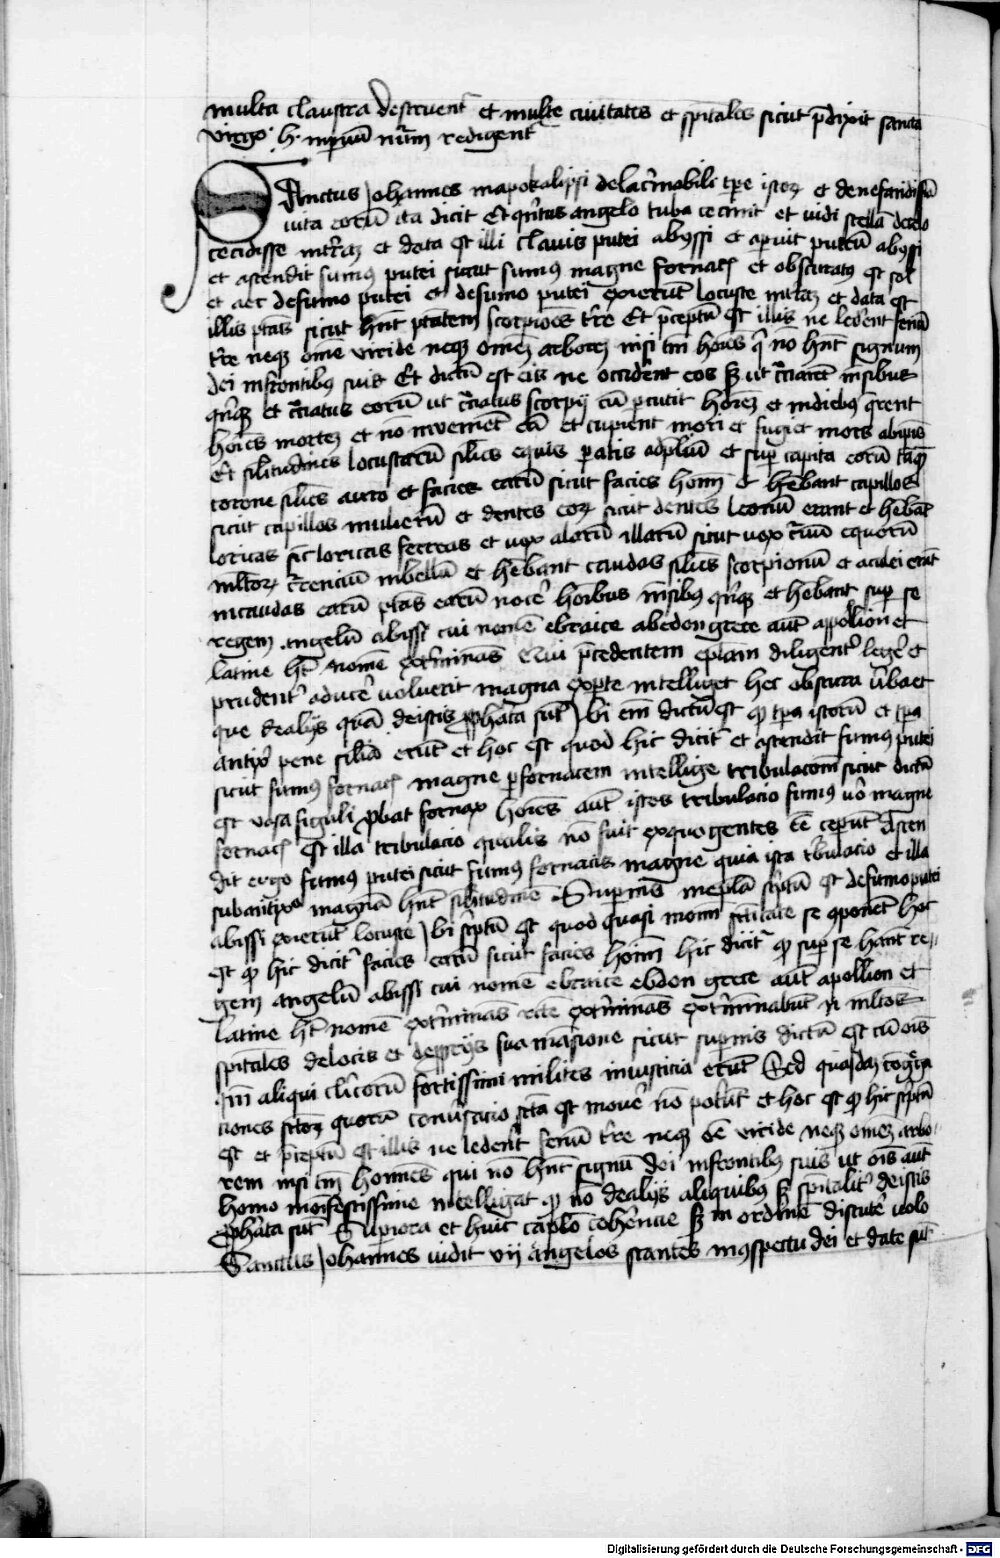 multa claustra destruent̄ et multe ciuitates et spītales sicut p̄dixit sancta
virgo h̄ nr̄m redigent
Sanctus Johannes in apokalipsi de lac̄mabili tp̄e istoꝝ et de nefandissīa
uita eorū ita dicit Et qn̄tus angelo tuba cecinit et vidi stellā de celo
cecidisse in tr̄aꝫ et data est illi clauis putei abyssi et apuit puteū abyssi
et ascendit fumꝰ putei sicut fumus magne fornacꝭ et obscuratꝰ est sol
et aer de fumo putei et de fumo putei exierūt locuste in tr̄aꝫ et data est
illis ptās sicut hn̄t ptatem scorpiōes tr̄re Et p̄ceptū est illis ne lederent fenū
tr̄re neqꝫ omē viride neqꝫ omēꝫ arboreꝫ nisi tm̄ hoīes q̄ nō hn̄t signum
dei in frontibus suis Et dictū est eis ne occiderent eos sꝫ ut cc̄iarēt mēsibus
qn̄qꝫ et cc̄iatus eorū ut cc̄iatus scorpij cū pcutit hoīeꝫ et in diebus q̄rent
hoīes morteꝫ et nō inuenient eā et cupient mori et fugiet mors ab ipīs
Et silitudines locustarū siles equis paratis ad pliū et sup capita eorū tāqꝫ
corone siles auro et facies earū sicut facies hoīm et hēbant capillos
sicut capillos mulierū et dentes eoꝝ sicut dentes leonū erant et hēbāt
loricas sic̄ loricas ferreas et vox alarū illarū sicut vox c̄ruū equorū
mltorꝫ cr̄rencium in bellū et hēbant caudas siles scorpionū et aculei erāt
in caudas earū ptās earū nocē hoībus mēsibus qn̄qꝫ et hēbant sup se
regem angelū abissi cui nomē ebraice abedon grece aut̄ appollion et
latine hn̄s nomē ext̄minans Qui p̄cedentem epl̄am diligent̄ legē et
prudent̄ aducē uoluerit magna ex pte intelliget hec obscura v̄ba et
que de alijs quā de istis pph̄ata sūt Ibi em̄ dictū est qꝫ tp̄a istorū et tp̄a
antix̄p̄i pene silia erūt et hoc est quod hic dicit̄ et ascendit fumꝰ putei
sicut fumꝰ fornacꝭ magne p fornacem intellige tribulacōem sicut dictū
est vasa figuli pbat fornax hoīes aut̄ iustos tribulacio fumꝰ uō magne
fornacꝭ est illa tribulacio qualis nō fuit ex quo gentes ēē ceperūt Ascen
dit ergo fumꝰ putei sicut fumꝰ fornacis magne quia ista tribulacio et illa
sub antix̄po magnā hn̄t silitudinē Superius in epl̄a sc̄ptū est de fumo putei
abissi exierūt locuste Ibi sc̄ptū est quod quasi noua sc̄itate se oponēt hoc
est qꝫ hic dicit̄ facies earū sicut facies hoīm hic dicit̄ qꝫ sup se hānt re
gem angelū abissi cui nomē ebraice ebdon grece aut̄ apollion et
latine hn̄s nomē ext̄minās recte ext̄minas ext̄minabūt mltos
spītales de locis et de pprijs sua māsione sicut supius dictū est
aliqui clīcorū fortissimi milites iniusticia erūt Sed quasdaꝫ congr̄ga
ciones sc̄toꝝ quorū conūsacio sc̄ta est mouē nō potūt et hoc est qꝫ hic sc̄ptū
est et p̄ceptū est illis ne lederēt fenū tr̄re neqꝫ oē viride neqꝫ omeꝫ arbo
rem nisi tm̄ homēs qui nō hn̄t signū dei in frontibus suis ut oīs aut̄
homo mōifestissime intelligat qꝫ nō de alijs aliquibus sꝫ spītalit̄ de istis
pph̄ata sūt Supiora et huic caplo cohērencie sꝫ in ordine discutē uolo
Sanctus Johannes uidit vij angelos stantes in ꝯspectu dei et date sūt
Digitalisierung gefördert durch die Deutsche Forschungsgemeinschaft - DFG